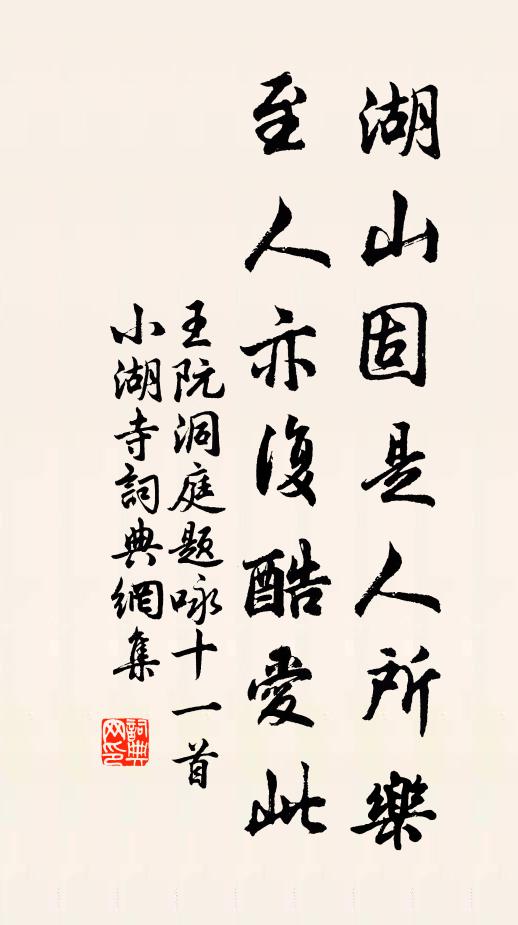 湖山固是人所樂
至人亦復酷愛此
王阮洞庭題咏十一首
小湖寺詞典網集
詞典網印